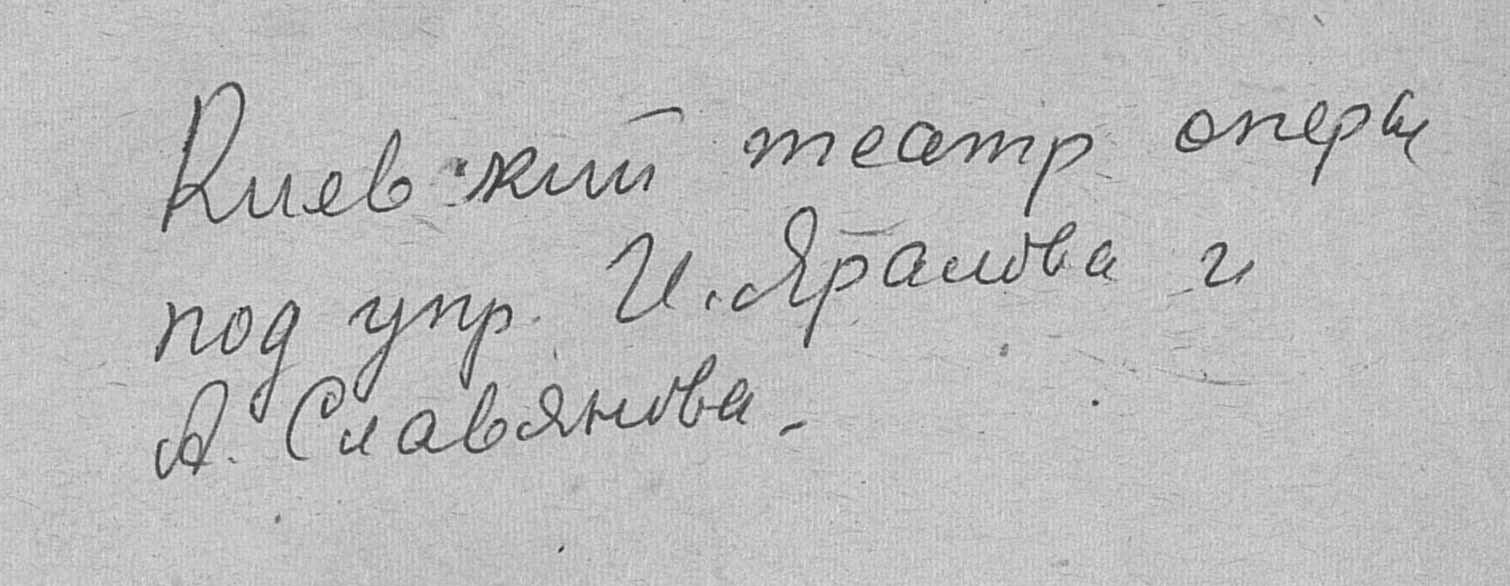 Киевский театр оперы
под упр. И. Яралова и
А. Славянова.